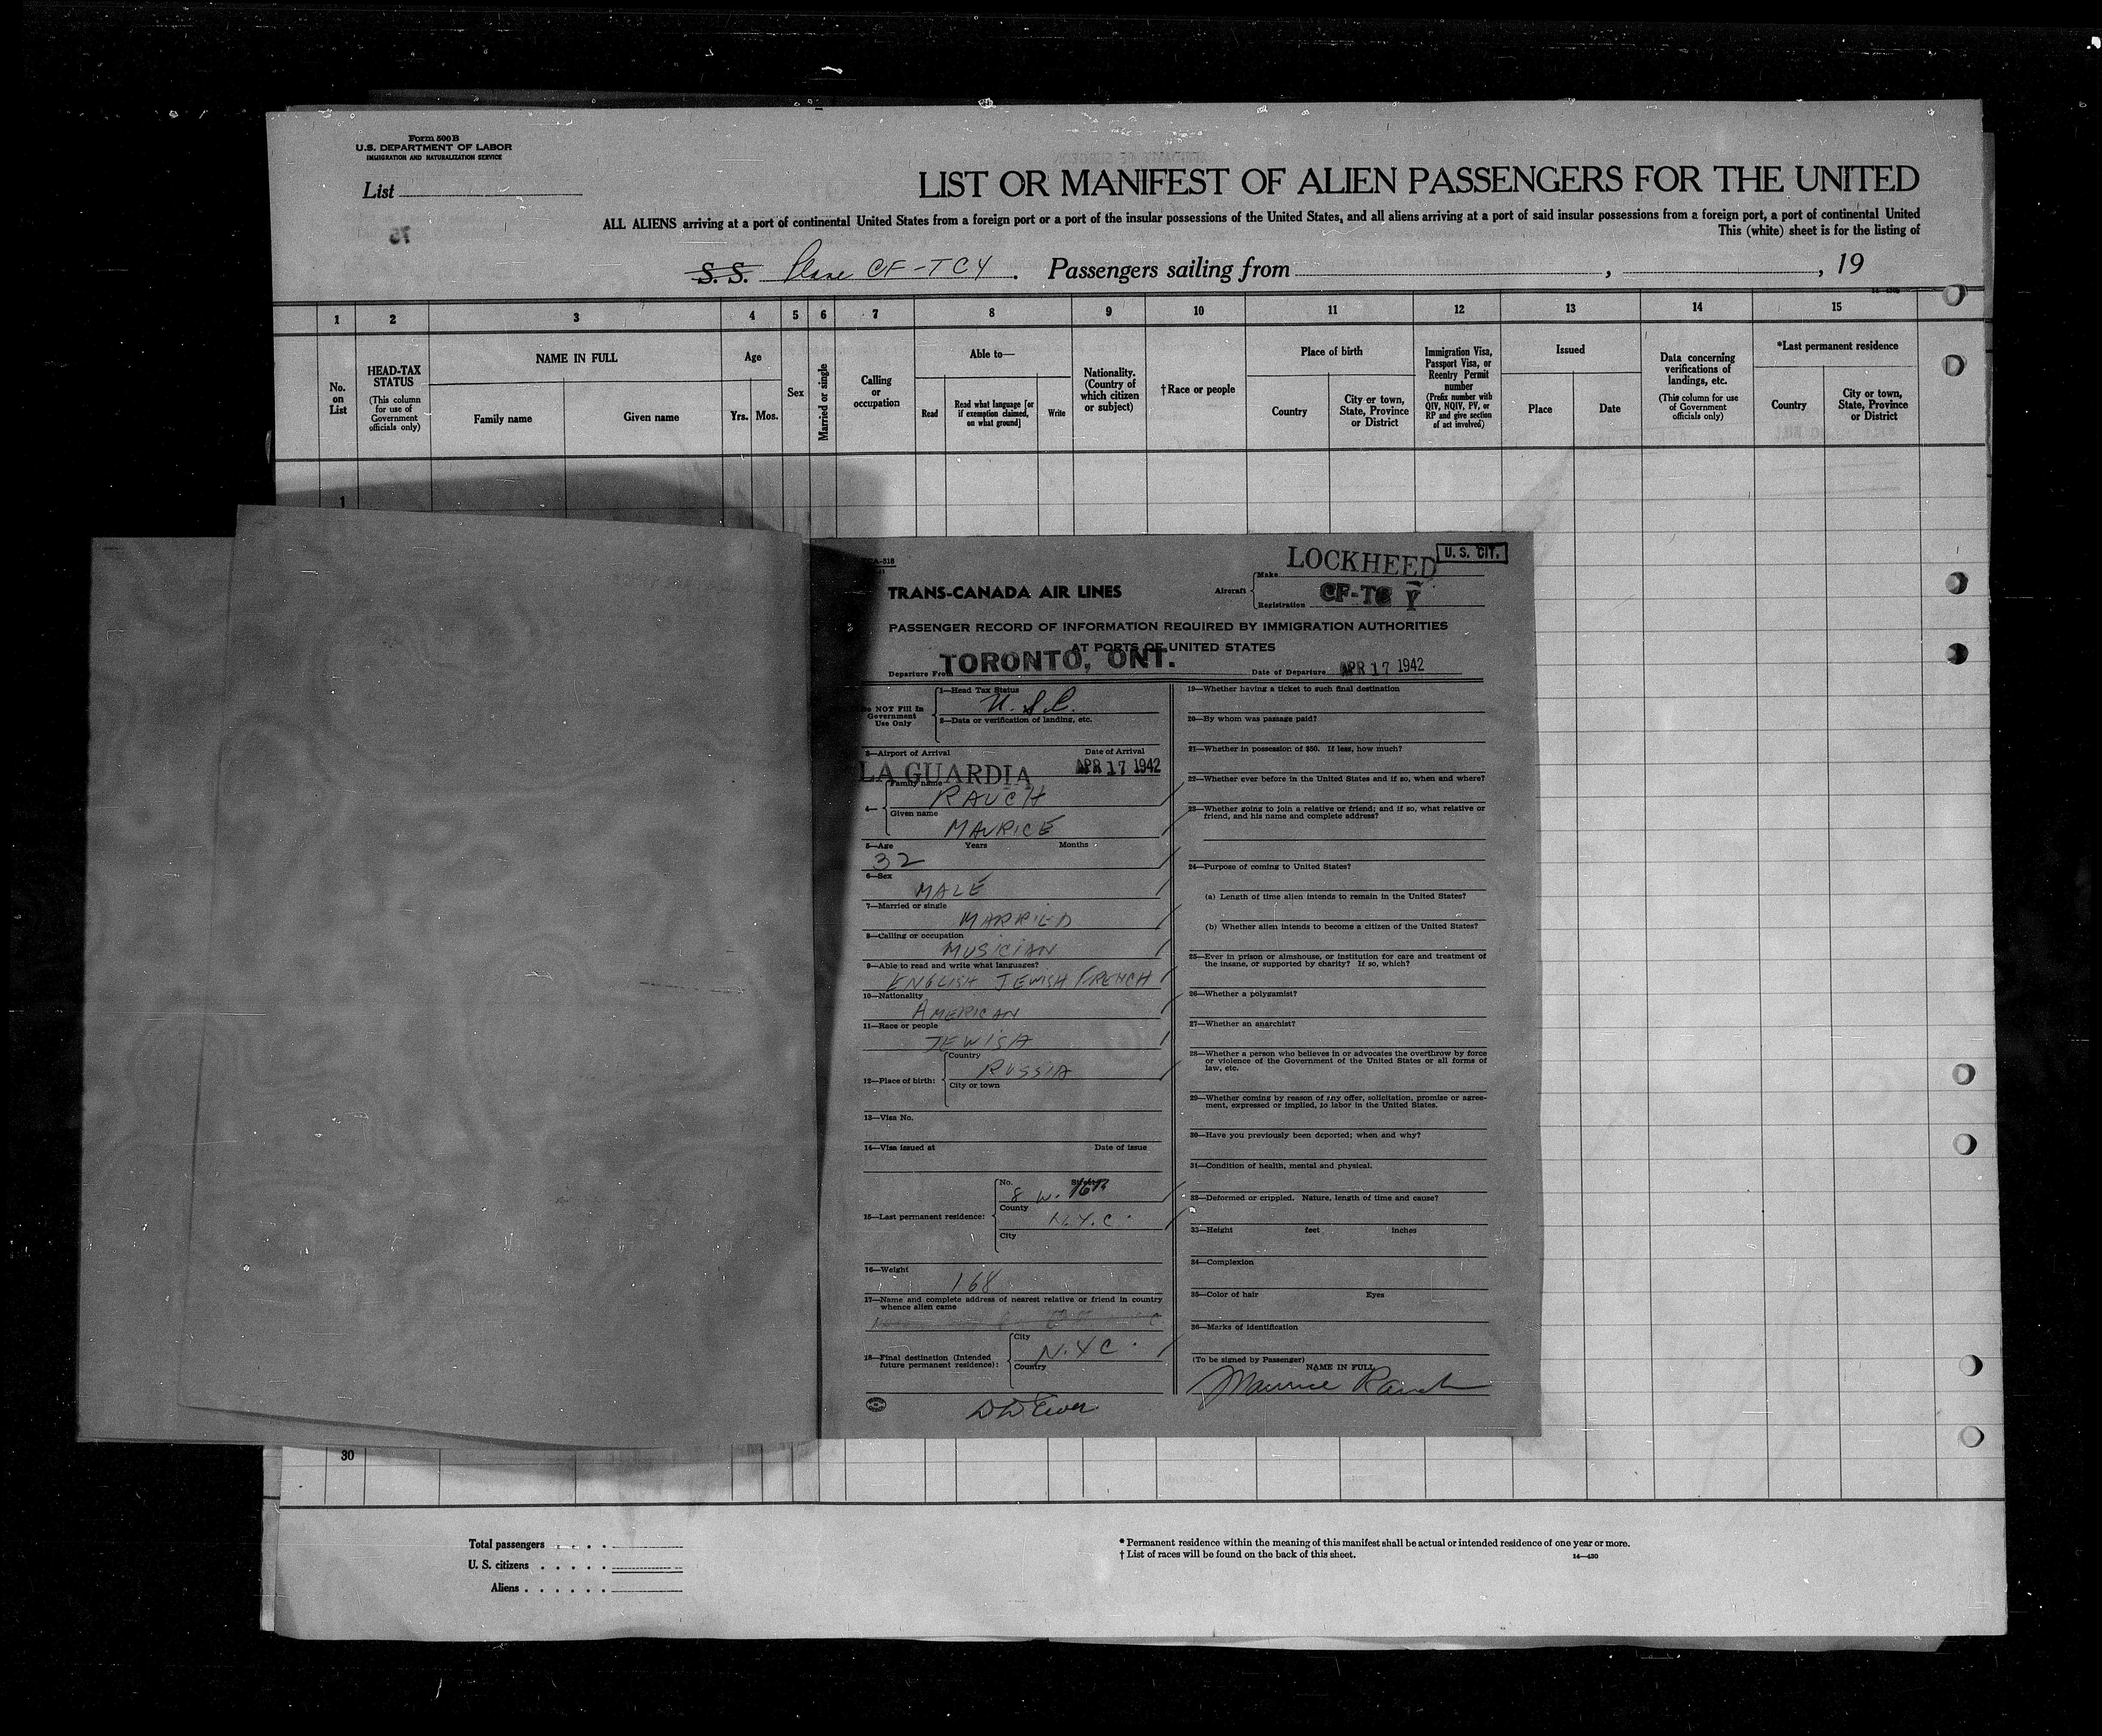 Form 500 B
U.S. DEPARTMENT OF LABOR
IMMIGRATION AND NATURALIZATION SERVICE
List
LIST OR MANIFEST OF ALIEN PASSENGERS FOR THE UNITED
ALL ALIENS arriving at a port of continental United States from a foreign port or a port of the insular possessions of the United States, and all aliens arriving at a port of said insular possessions from a foreign port, a port of continental United
This (white) sheet is for the listing of
75
S. S. Plane CF-TCY. Passengers sailing from , , 19
1 2 3 4 5 6 7 8 9 10 11 12 13 14 15
No. on List
HEAD-TAX STATUS
(This column for use of Government officials only)
NAME IN FULL
Family name Given name
Age
Yrs. Mos.
Sex
Married or single
Calling or occupation
Able to—
Read
Read what language [or if exemption claimed, on what ground]
Write
Nationality. (Country of which citizen or subject)
†Race or people
Place of birth
Country
City or town, State, Province or District
Immigration Visa, Passport Visa, or Reentry Permit number
(Prefix number with QIV, NQIV, PV, or RP and give section of act involved)
Issued
Place Date
Data concerning verifications of landings, etc.
(This column for use of Government officials only)
*Last permanent residence
Country
City or town, State, Province or District
1
U. S. CIT.
LOCKHEED
Aircraft Make
CF-TC Y
Registration
TRANS-CANADA AIR LINES
PASSENGER RECORD OF INFORMATION REQUIRED BY IMMIGRATION AUTHORITIES
AT PORTS OF UNITED STATES
Departure From TORONTO, ONT. Date of Departure APR 17 1942
Do NOT Fill In Government Use Only
1—Head Tax Status
U. S. C.
2—Data or verification of landing, etc.
3—Airport of Arrival Date of Arrival
LA GUARDIA APR 17 1942
4— Family name
RAUCH
Given name
MAURICE
5—Age Years Months
32
6—Sex
MALE
7—Married or single
MARRIED
8—Calling or occupation
MUSICIAN
9—Able to read and write what languages?
ENGLISH JEWISH FRENCH
10—Nationality
AMERICAN
11—Race or people
JEWISH
12—Place of birth: Country
RUSSIA
City or town
13—Visa No.
14—Visa issued at Date of issue
15—Last permanent residence: No. Street
8 W. 16th
County
N.Y.C.
City
16—Weight
168
17—Name and complete address of nearest relative or friend in country
whence alien came
18—Final destination (Intended future permanent residence): City
N.Y.C.
Country
19—Whether having a ticket to such final destination
20—By whom was passage paid?
21—Whether in possession of $50. If less, how much?
22—Whether ever before in the United States and if so, when and where?
23—Whether going to join a relative or friend; and if so, what relative or
friend, and his name and complete address?
24—Purpose of coming to United States?
(a) Length of time alien intends to remain in the United States?
(b) Whether alien intends to become a citizen of the United States?
25—Ever in prison or almshouse, or institution for care and treatment of
the insane, or supported by charity? If so, which?
26—Whether a polygamist?
27—Whether an anarchist?
28—Whether a person who believes in or advocates the overthrow by force
or violence of the Government of the United States or all forms of
law, etc.
29—Whether coming by reason of any offer, solicitation, promise or agree-
ment, expressed or implied, to labor in the United States.
30—Have you previously been deported; when and why?
31—Condition of health, mental and physical.
32—Deformed or crippled. Nature, length of time and cause?
33—Height feet inches
34—Complexion
35—Color of hair Eyes
36—Marks of identification
(To be signed by Passenger)
NAME IN FULL
Maurice Rauch
30
Total passengers
U. S. citizens
Aliens
* Permanent residence within the meaning of this manifest shall be actual or intended residence of one year or more.
† List of races will be found on the back of this sheet.
14—430